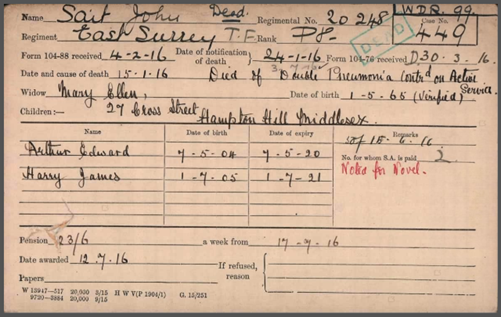 Name Sait John Dead. Regimental No. 20248 W.D.R. 99.
Regiment East Surrey T.F. Rank Pte Case No. 449
Form 104-88 received 4-2-16 Date of notification of death 24-1-16 Form 104-76 received D30.3.16.
Date and cause of death 15.1.16 Died of Double Pneumonia Contrd on Active Service.
Widow Mary Ellen, Date of birth 1-5-65 (Verified)
Children:— 27 Cross Street, Hampton Hill Middlesex.
Name Date of birth Date of expiry Remarks
Arthur Edward 7-5-04 7-5-20 15.6.16
No. for whom S.A. is paid 2
Harry James 1-7-05 1-7-21 Noted for Novel.
Pension 23/6 a week from 17-7-16
Date awarded 12.7.16 If refused, reason
Papers
W 13947—517 20,000 5/15 H W V(P 1904/1) G. 15/251
9720—3884 20,000 9/15